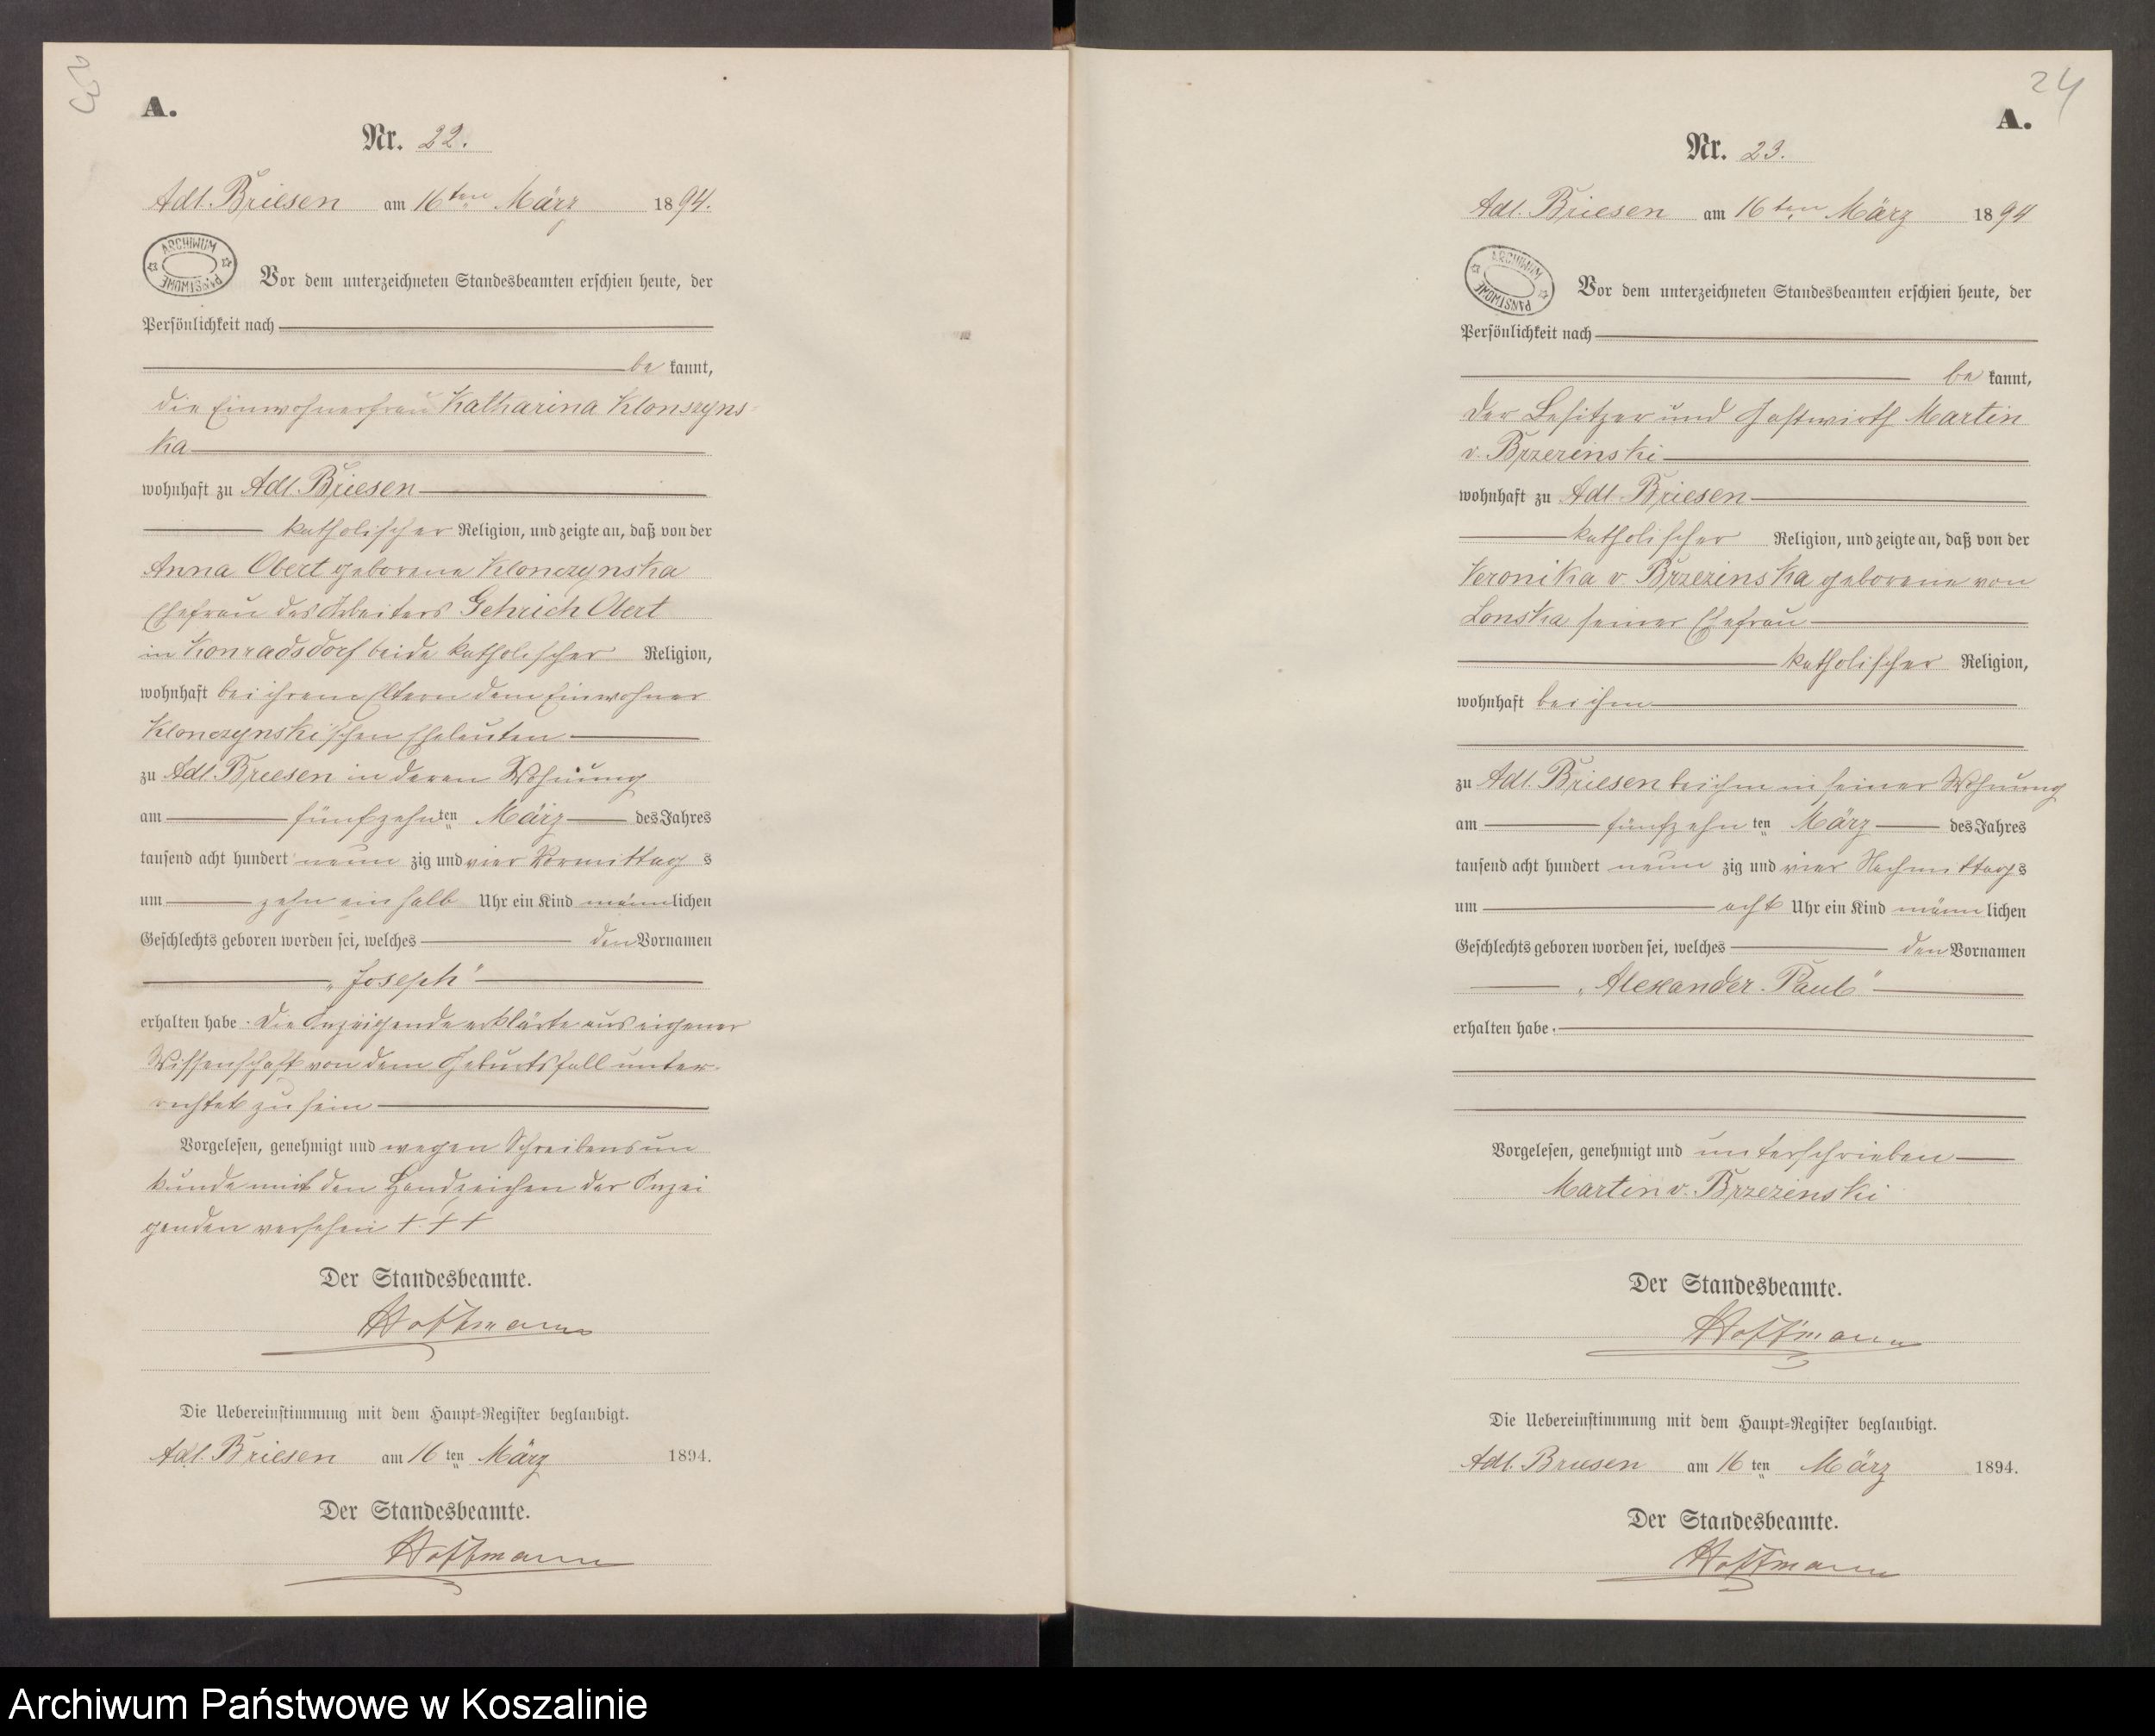 23
A.
Nr. 22.
Adl. Briesen am 16ten März 1894.
ARCHIWUM PAŃSTWOWE
Vor dem unterzeichneten Standesbeamten erschien heute, der
Persönlichkeit nach
be kannt,
die Einwohnerfrau Katharina Klonszyns-
ka
wohnhaft zu Adl. Briesen
katholischer Religion, und zeigte an, daß von der
Anna Obert geborene Klonczynska
Ehefrau des Arbeiters Gehrich Obert
in Konradsdorf beide katholischer Religion,
wohnhaft bei ihren Eltern dem Einwohner
Klonczynski'schen Eheleuten
zu Adl. Briesen in deren Wohnung
am fünfzehnten März des Jahres
tausend acht hundert neun zig und vier Vormittag s
um zehn ein halb Uhr ein Kind männlichen
Geschlechts geboren worden sei, welches den Vornamen
„Joseph"
erhalten habe. Die Anzeigende erklärte aus eigener
Wissenschaft von dem Geburtsfall unter-
richtet zu sein
Vorgelesen, genehmigt und wegen Schreibensun
kunde mit den Handzeichen der Anzei
genden versehen + + +
Der Standesbeamte.
Hoffmann
Die Uebereinstimmung mit dem Haupt-Register beglaubigt.
Adl. Briesen am 16 ten März 1894.
Der Standesbeamte.
Hoffmann
24
A.
Nr. 23.
Adl. Briesen am 16ten März 1894
ARCHIWUM PAŃSTWOWE
Vor dem unterzeichneten Standesbeamten erschien heute, der
Persönlichkeit nach
be kannt,
der Besitzer und Gastwirth Martin
v. Brzezinski
wohnhaft zu Adl. Briesen
katholischer Religion, und zeigte an, daß von der
Veronika v. Brzezinska geborene von
Lonska seiner Ehefrau
katholischer Religion,
wohnhaft bei ihm
zu Adl. Briesen bei ihm in seiner Wohnung
am fünfzehn ten März des Jahres
tausend acht hundert neun zig und vier Nachmittags
um acht Uhr ein Kind männ lichen
Geschlechts geboren worden sei, welches den Vornamen
„Alexander Paul"
erhalten habe.
Vorgelesen, genehmigt und unterschrieben
Martin v. Brzezinski
Der Standesbeamte.
Hoffmann
Die Uebereinstimmung mit dem Haupt-Register beglaubigt.
Adl. Briesen am 16 ten März 1894.
Der Standesbeamte.
Hoffmann
Archiwum Państwowe w Koszalinie